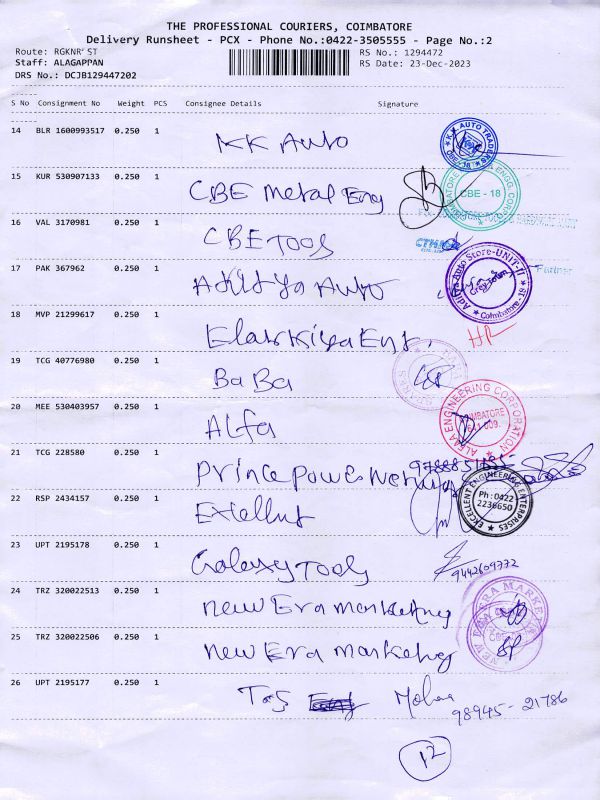 THE PROFESSIONAL COURIERS, COIMBATORE
Delivery Runsheet - PCX - Phone No.:0422-3505555 - Page No.:2
Route: RGKNR ST
RS No.: 1294472
Staff: ALAGAPPAN
RS Date: 23-Dec-2023
DRS No.: DCJB129447202
S No Consignment No Weight PCS Consignee Details Signature
14 BLR 1600993517 0.250 1 KK Auto
15 KUR 530907133 0.250 1 CBE Metal Eng
CBE - 18
16 VAL 3170981 0.250 1 CBE TOOS
Partner
17 PAK 367962 0.250 1 Aditya Auto
Aditya Auto Store-UNIT-II
Coimbatore
18 MVP 21299617 0.250 1 Elakkiya Ent.
HR
19 TCG 40776980 0.250 1 BaBa
20 MEE 530403957 0.250 1 Alfa
ALFAA ENGINEERING CORPORATION
COIMBATORE
21 TCG 228580 0.250 1 Prince Power
22 RSP 2434157 0.250 1 Excellent
EXCELLENT ENGINEERING ENTERPRISES
Ph:0422
2236650
23 UPT 2195178 0.250 1 Galaxy Tools
9442609772
24 TRZ 320022513 0.250 1 New Era marketing
NEW ERA MARKE
25 TRZ 320022506 0.250 1 New Era marketing
26 UPT 2195177 0.250 1
98945-21786
12